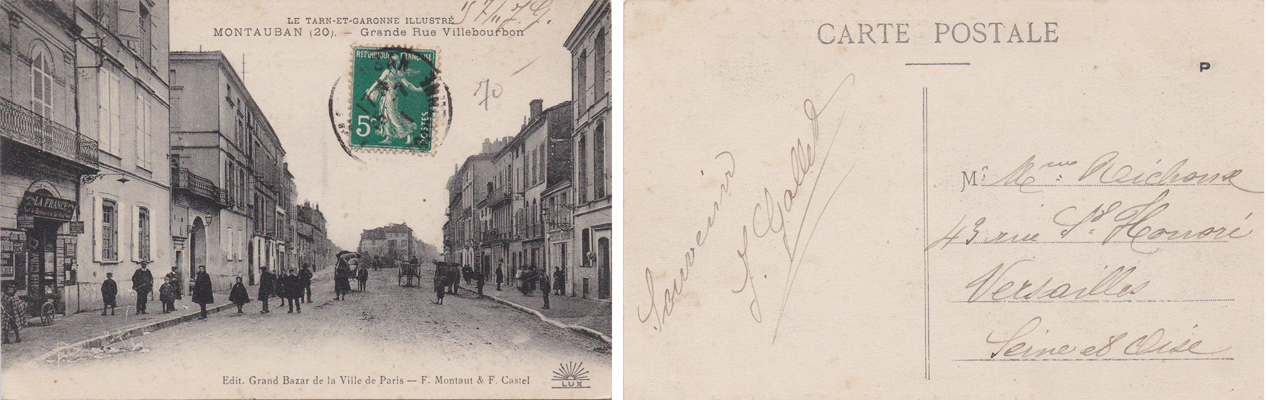 LE TARN-ET-GARONNE ILLUSTRÉ
MONTAUBAN (20). — Grande Rue Villebourbon
REPUBLIQUE FRANÇAISE
5c
POSTES
70
LA FRANCE
Edit. Grand Bazar de la Ville de Paris — F. Montaut & F. Castel
LUX
CARTE POSTALE
P
Souvenir
M. Mme
43 rue St Honoré
Versailles
Seine et Oise